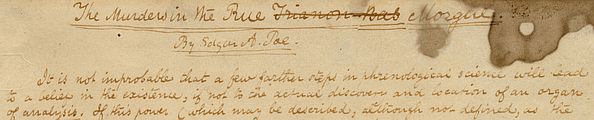 The Murders in the Rue Trianon-Bas Morgue.
By Edgar A. Poe.
It is not improbable that a few farther steps in phrenological science will lead
to a belief in the existence, if not to the actual discovery and location of an organ
of analysis. If this power (which may be described, although not defined, as the